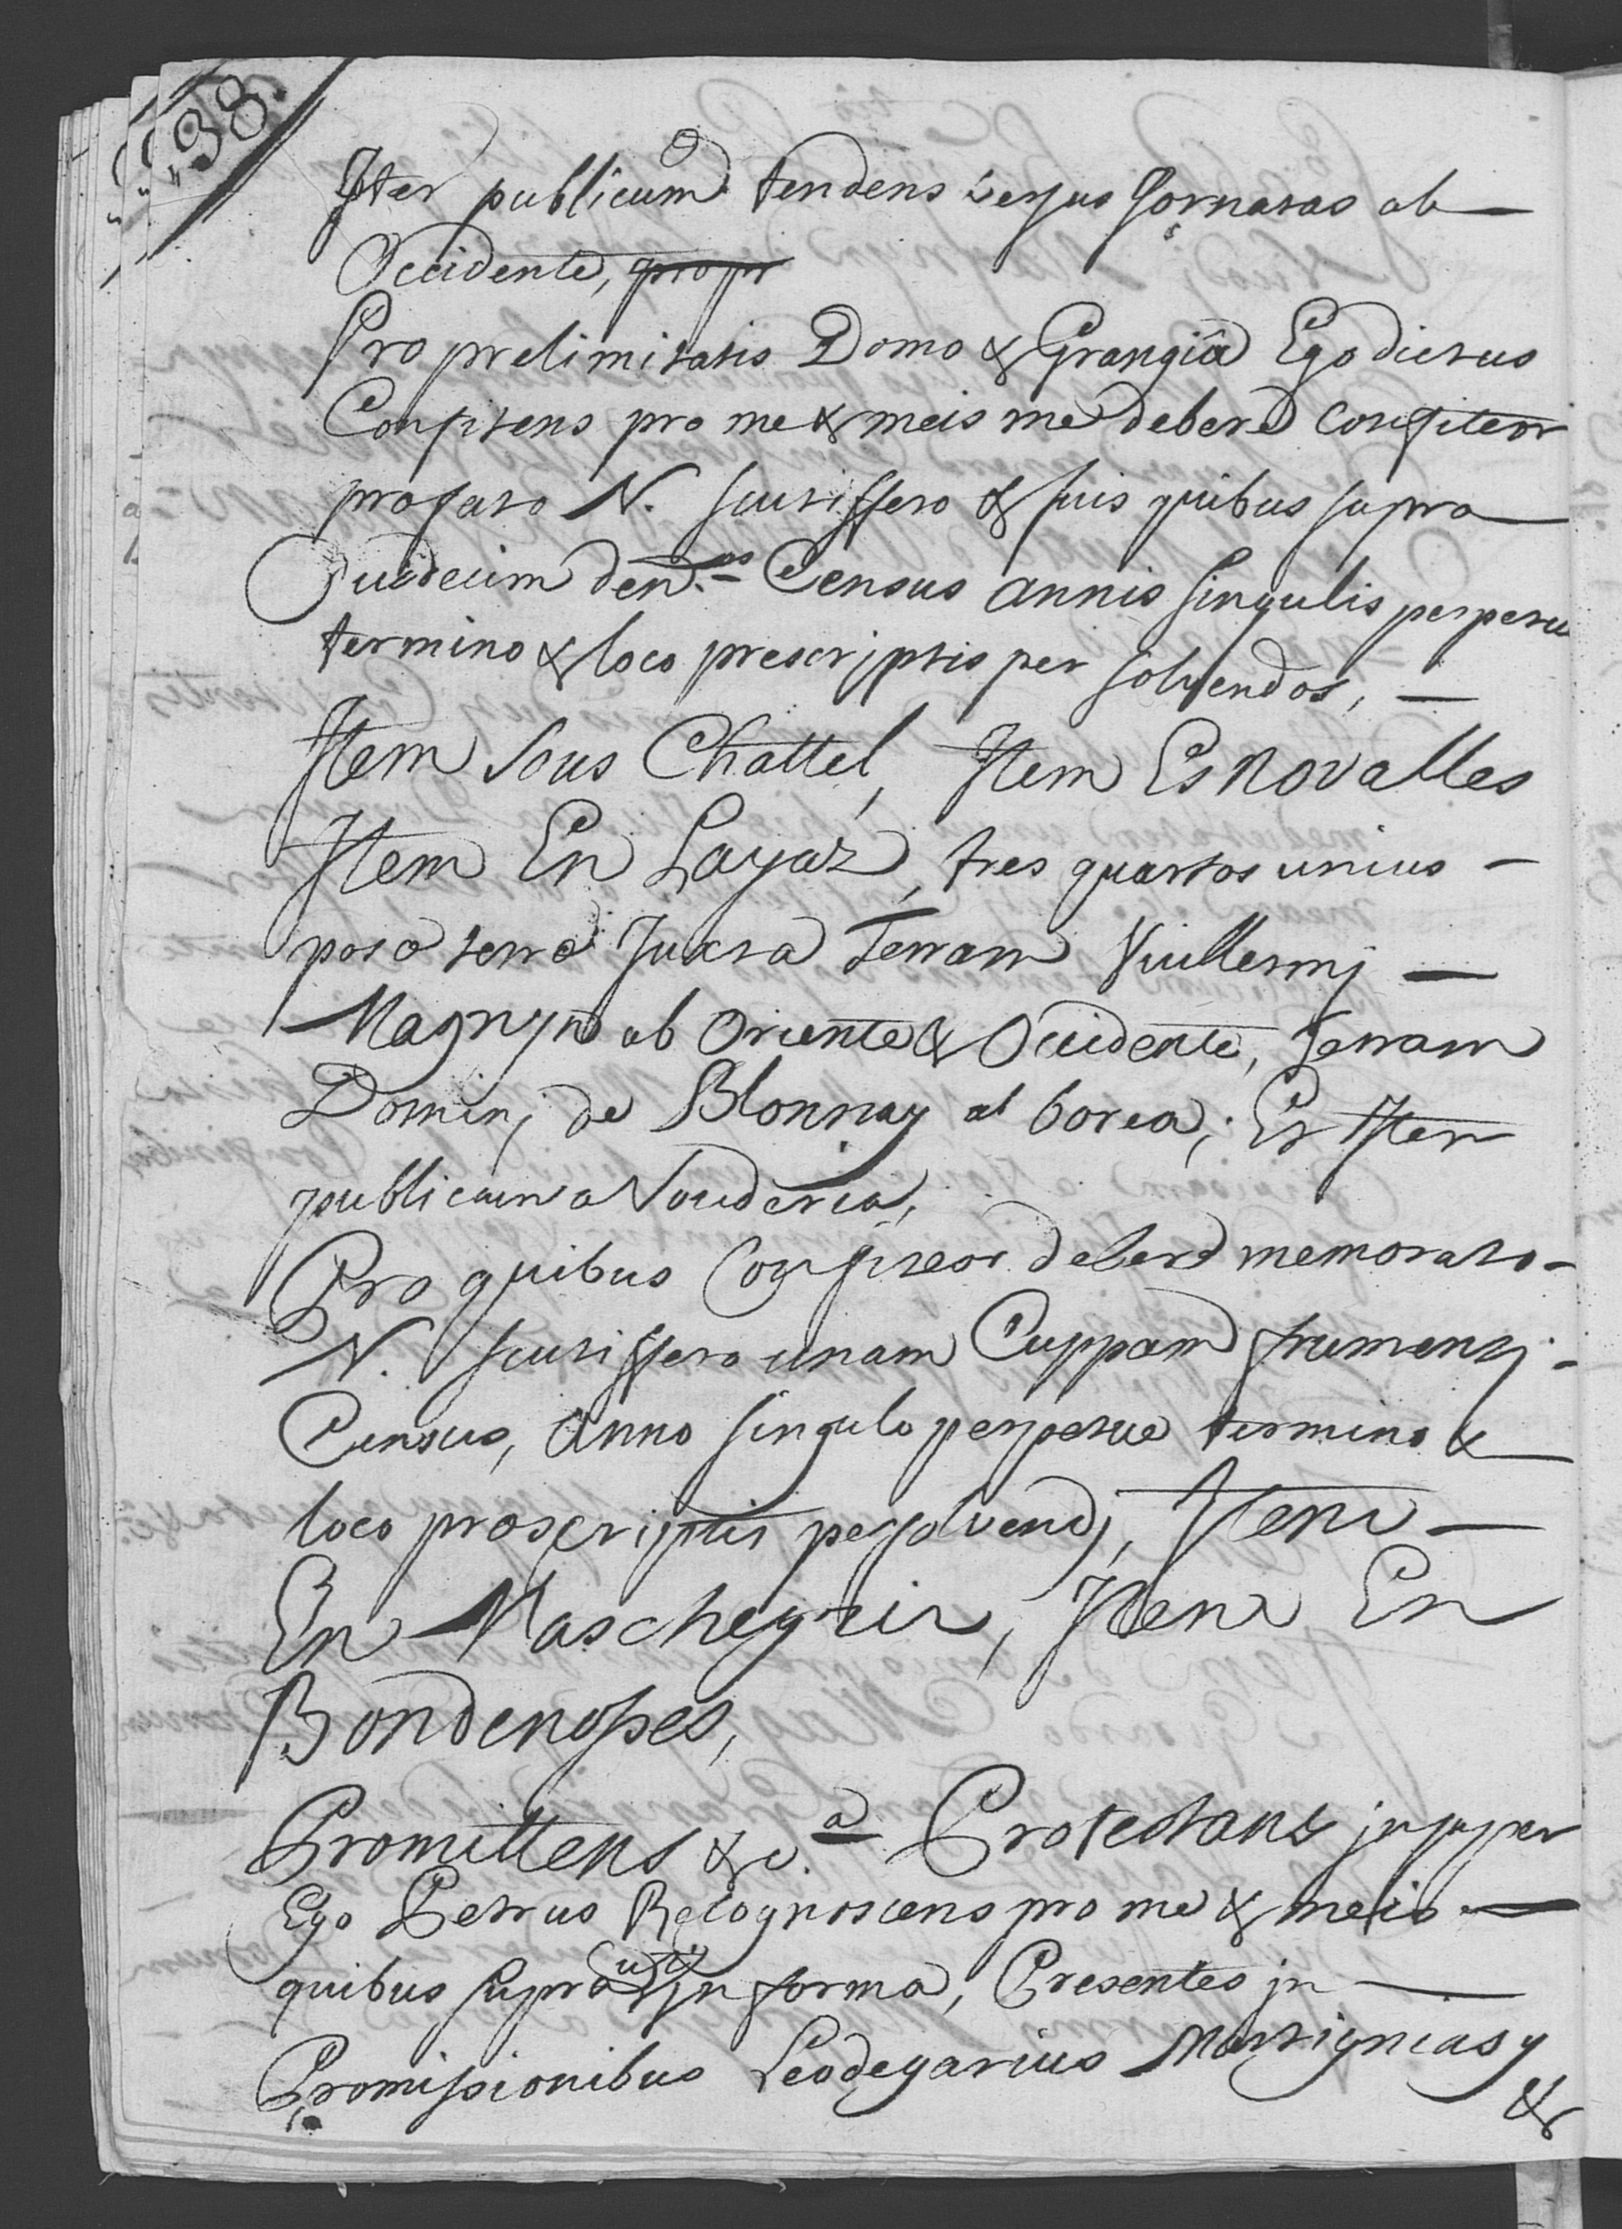 38.
Iter publicum tendens versus fornatas ab
Occidente, propr
Pro prelimitatis Domo & Grangiâ Ego dictus
Confitens pro me & meis me debere confiteor
prefato N. scutiffero & suis quibus supra
Quidecim den.os Census annis singulis perpetu
termino & loco prescriptis per solvendos,
Item Sous Chattel, Item Es Novalles
Item En Layaz, tres quartos unius
pose terre Juxta Terram Vuillermj
Magnyn ab Oriente & Occidente, terram
Dominj de Blonnay at borea; Et Iter
publicum a Vouderia,
Pro quibus Confiteor debere memorato
N. scutiffero unam Cuppam frumentj
Census, anno singulo perpetue termino &
loco prescriptis persolvendj, Item
En Mascheyrir, Item En
Bondenosses,
Promittens &c.a Protestans insuper
Ego Petrus Recognoscens pro me & meis
quibus supra uti in forma, Presentes jn
Promissionibus Leodegarius Martignias y
&